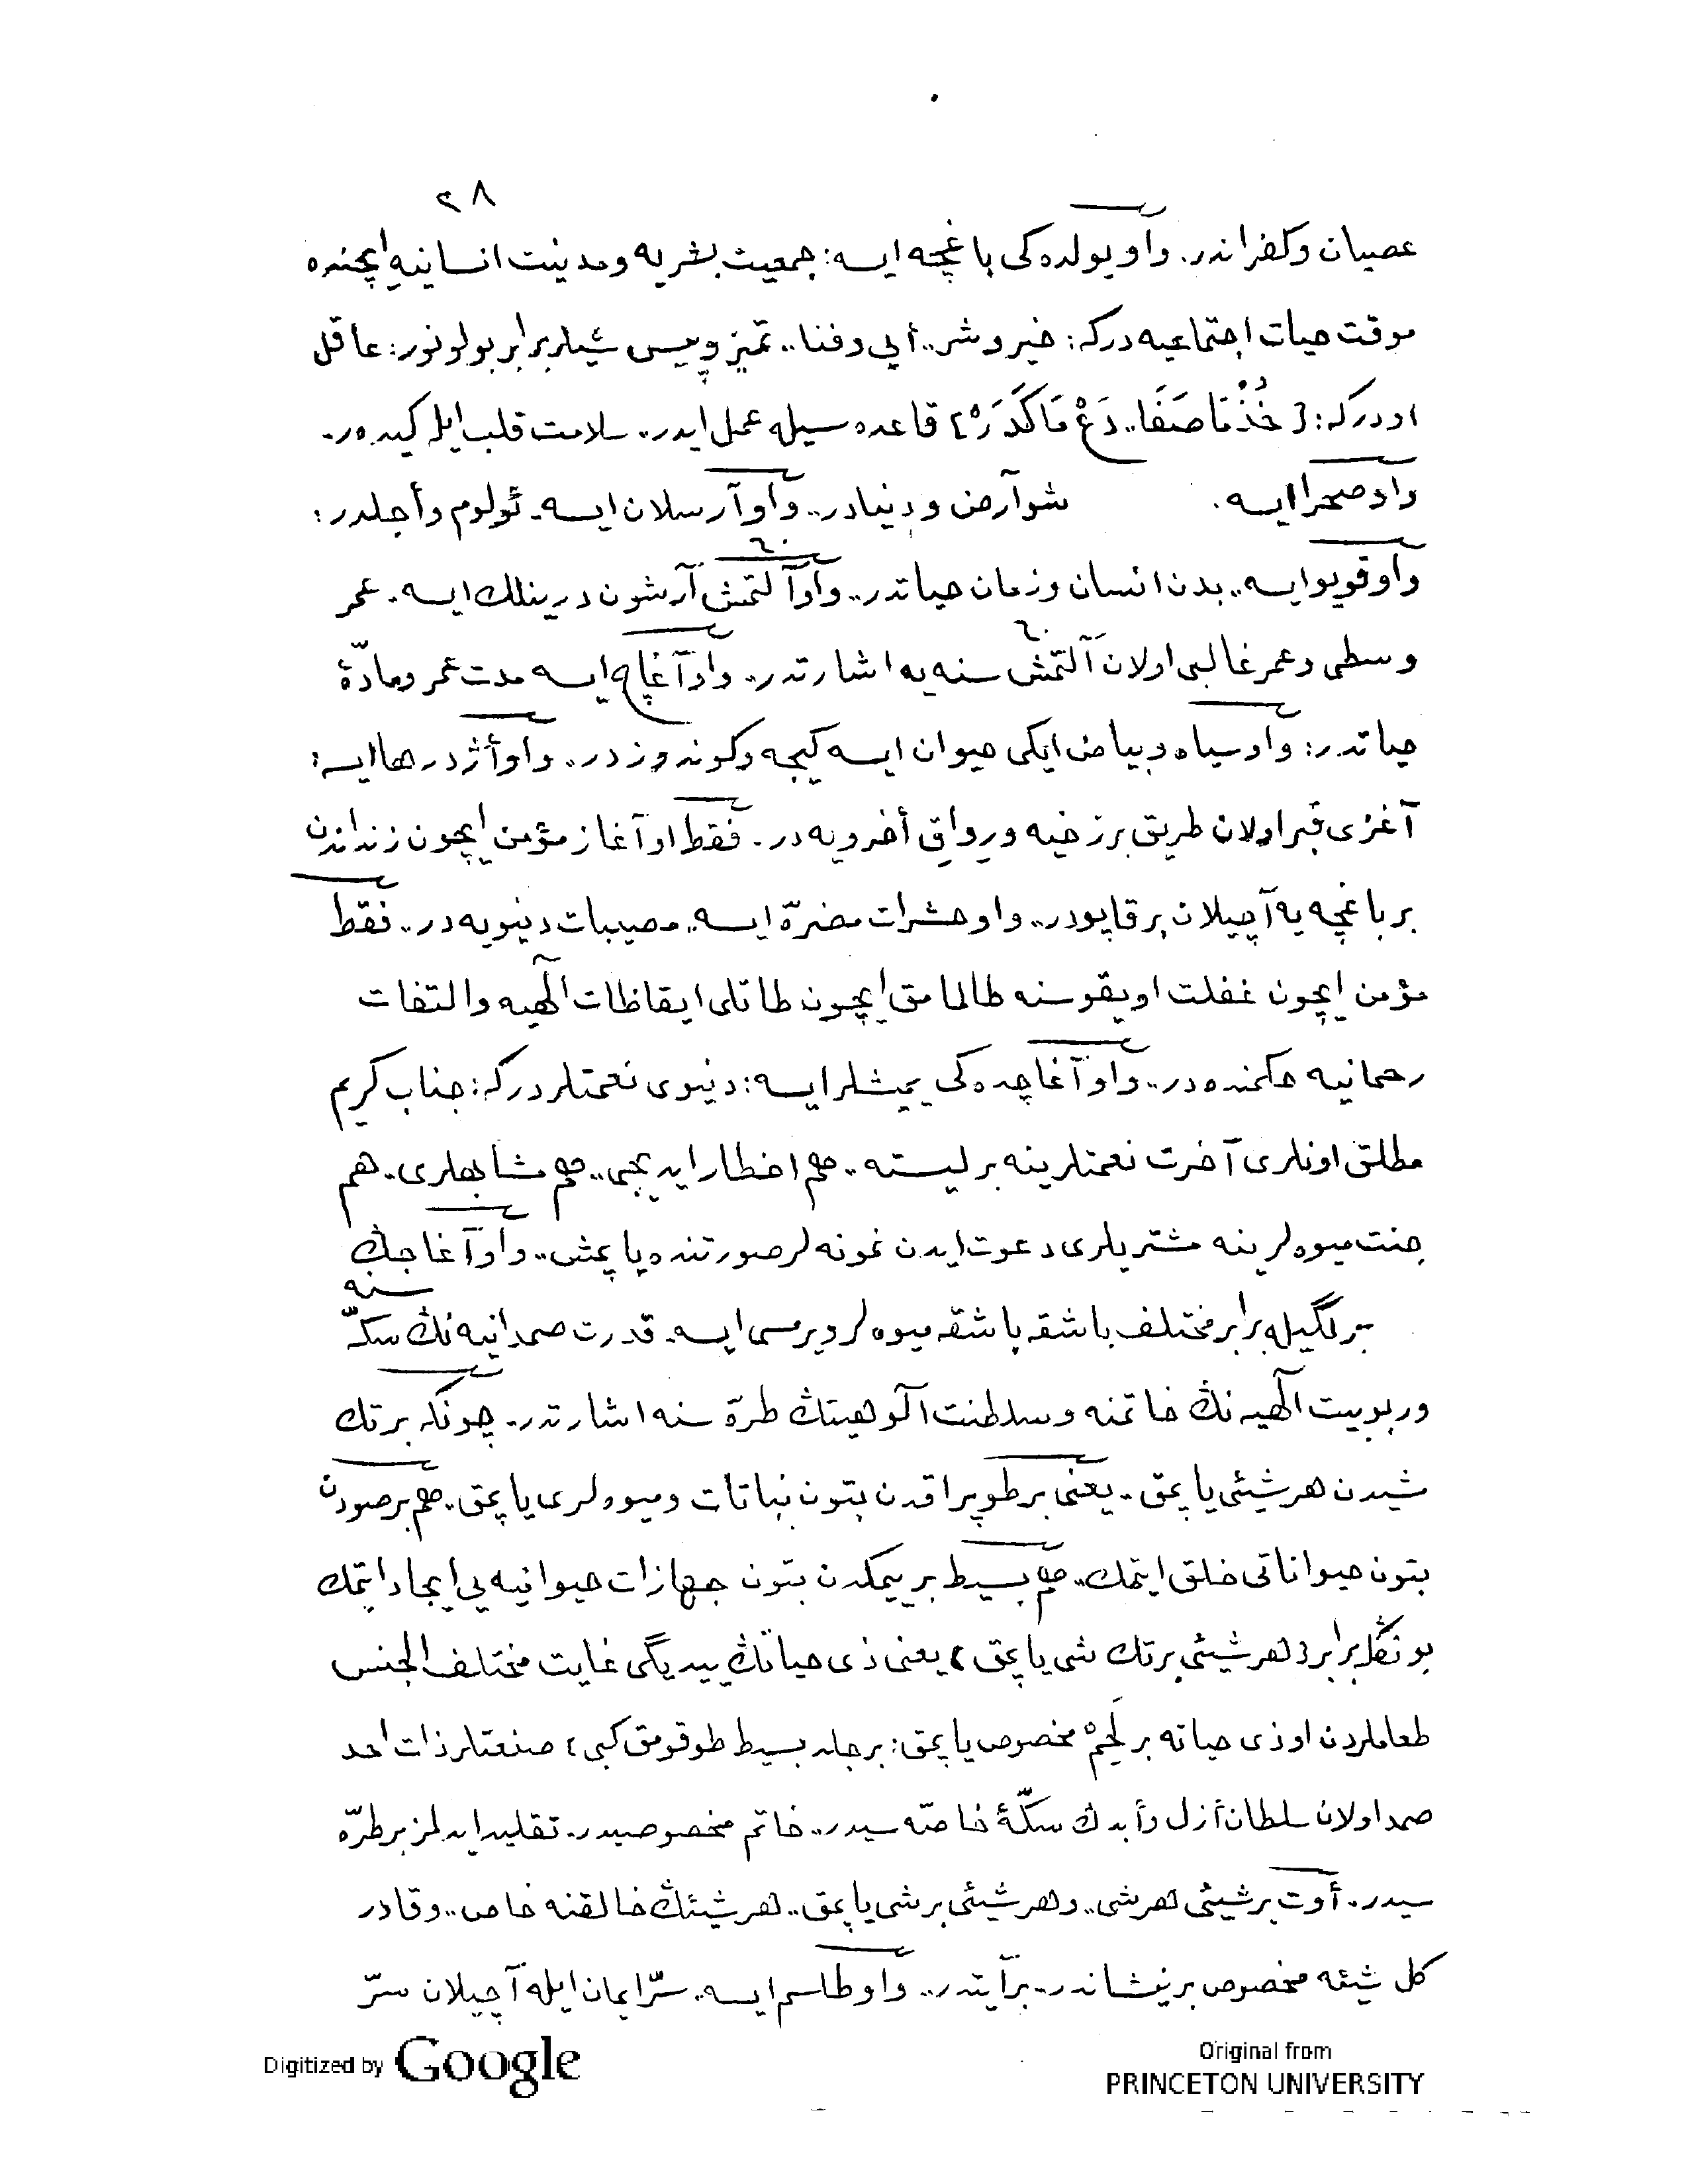 ٢٨
عصيان وكفراندر. واو يولده‌كى باغچه ايسه: جمعيت بشريه ومدنيت انسانيه ايچنده
موقت حيات اجتماعيه دركه: خير وشر.. أيى وفنا.. تميز وپيس شيلر برابر بولونور: عاقل
اودركه: [خُذْ مَا صَفَا.. دَعْ مَا كَدَرْ] قاعده سيله عمل ايدر.. سلامت قلب ايله كيده‌ر.
واو صحرا ايسه. شو أرض و دنيادر.. واو آرسلان ايسه. ئولوم وأجلدر:
واو قويو ايسه.. بدن انسان وزمان حياتدر.. واو آلتمش ٦٠ آرشون درينلك ايسه. عمر
وسطى وعمر غالبى اولان آلتمش ٦٠ سنه‌يه اشارتدر.. واو آغاچ ايسه مدت عمر ومادّۀ
حياتدر: واو سياه وبياض ايكى حيوان ايسه كيجه وكوندوزدر.. واو أژدرها ايسه:
آغزى قبر اولان طريق برزخيه ورواق أخرويه در. فقط او آغاز مؤمن ايچون زنداندن
بر باغچه يه آچيلان بر قاپودر.. واو حشرات مضرّه ايسه.. مصيبات دنيويه در.. فقط
مؤمن ايچون غفلت اويقوسنه طالمامق ايچون طاتلى ايقاظات الٓهيه والتفات
رحمانيه حكمنده در.. واو آغاچده‌كى يميشلر ايسه: دنيوى نعمتلردركه: جناب كريم
مطلق اونلرى آخرت نعمتلرينه بر ليسته.. هم اخطار ايديجى.. هم مشابهلرى. هم
جنت ميوه‌لرينه مشتريلرى دعوت ايدن نمونه‌لر صورتنده ياپمش.. واو آغاجڭ
برلگيله برابر مختلف باشقه باشقه ميوه‌لر ويرمسى ايسه. قدرت صمدانيه‌نڭ سكّه‌سنه
وربوبيت الٓهيه‌نڭ خاتمنه وسلطنت آلوهيتڭ طرّه سنه اشارتدر. چونكه بر تك
شيدن هر شيئى ياپمق. يعنى بر طوپراقدن بتون نباتات وميوه‌لرى ياپمق. هم بر صودن
بتون حيواناتى خلق ايتمك.. هم بسيط بر ييمكدن بتون جهازات حيوانيه يى ايجاد ايتمك
بونڭله برابر [هر شيئى بر تك شى ياپمق] يعنى ذى حياتڭ ييديگى غايت مختلف الجنس
طعاملردن او ذى حياته بر لَحِمْ مخصوص ياپمق: بر جلد بسيط طوقومق كبى؛ صنعتلر ذات احد
صمد اولان سلطان أزل وأبدڭ سكّۀ خاصّه سيدر.. خاتم مخصوصيدر. تقليد ايدلمز بر طرّه
سيدر. أوت بر شيئى هر شى.. وهر شيئى بر شى ياپمق.. هر شيئڭ خالقنه خاص.. وقادر
كل شيئه مخصوص بر نشاندر. بر آيتدر.. واو طلسم ايسه.. سرّ ايمان ايله آچيلان سرّ
Digitized by Google
Original from
PRINCETON UNIVERSITY